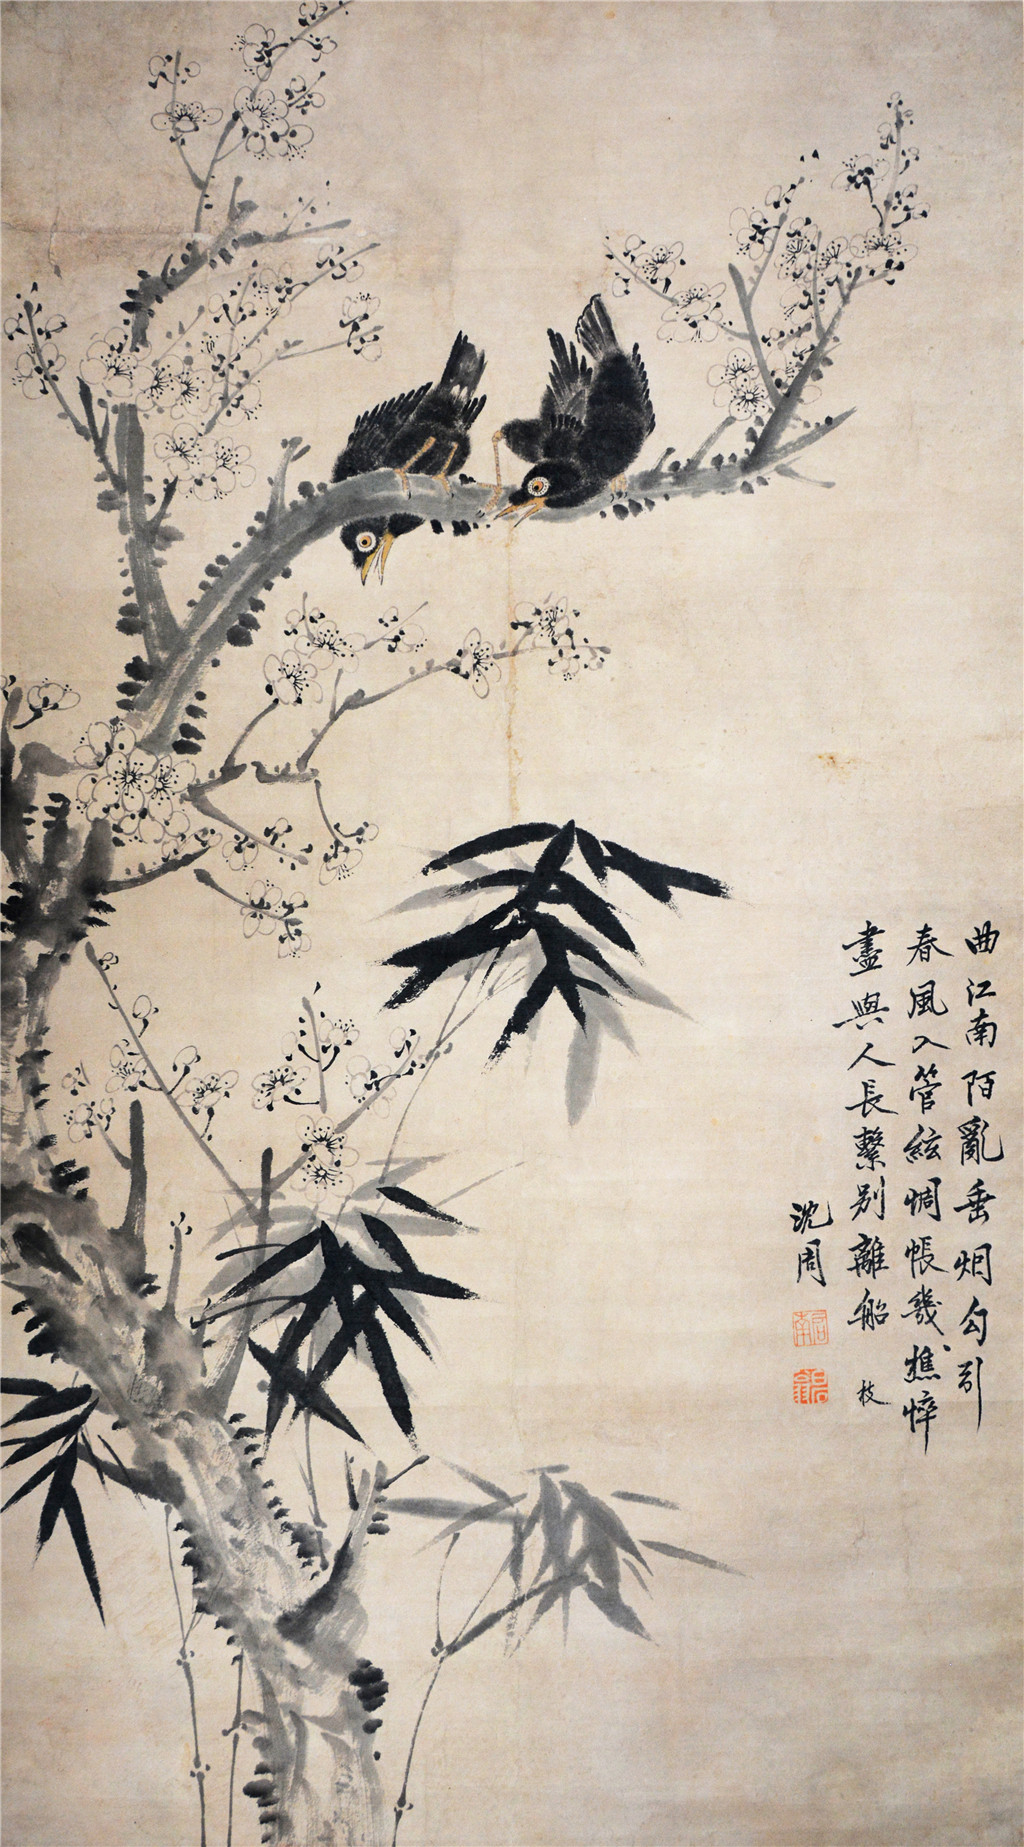 曲江南陌亂垂烟勾引
春風入管絃惆悵幾樵悴
盡與人長繫別離船 枝
沈周
啟南